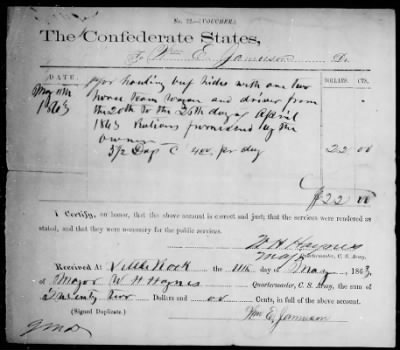 No. 22.—(VOUCHER.)
The Confederate States,
To Wm E. Jamieson Dr.
DATE. DOLLARS. CTS.
May 11th For hauling beef hides with one two
1863 horse team wagon and driver from
the 20th to the 26th day of April
1863 Rations furnished by the
owner
5½ Days @ 4.00 per day 22 00
$22 00
I Certify, on honor, that the above account is correct and just; that the services were rendered as
stated, and that they were necessary for the public services.
W H Haynes
Maj Quartermaster, C. S. Army.
Received At Little Rock the 11th day of May, 1863,
of Major W H Haynes Quartermaster, C. S. Army, the sum of
Twenty two Dollars and 00 Cents, in full of the above account.
(Signed Duplicate.) Wm E. Jamieson